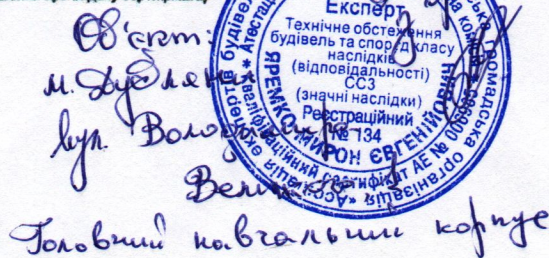 Об'єкт:
м. Дубляни
вул. Володимира
Великого 1
Головний навчальний корпус
Експерт
Технічне обстеження
будівель та споруд класу
наслідків
(відповідальності)
СС3
(значні наслідки)
Реєстраційний
№ 134
ЯРЕМКО МИРОН ЄВГЕНІЙОВИЧ
кваліфікаційний сертифікат АЕ №
громадська організація "Асоціація експертів будівельної